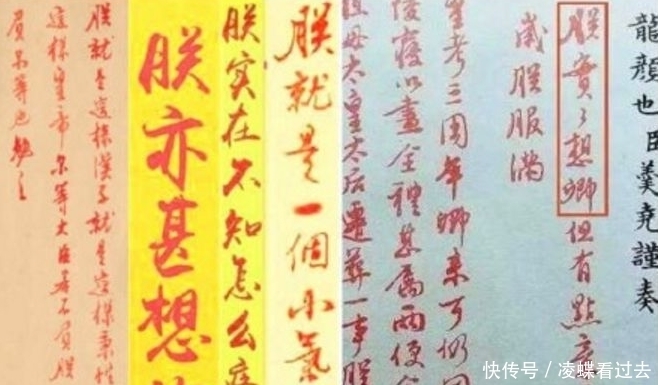 朕就是這樣漢子就是這樣秉性
這樣皇帝尔等大臣若不負朕
負尔等也勉之
朕亦甚想
朕实在不知怎么疼
朕就是一個小氣
龍顏也臣羹堯謹奏
朕實々想卿但有點
朕服滿
三周年卿來可仍同
以盡全禮甚屬兩便
母太皇太后遷葬一事朕
快传号／凌蝶看过去